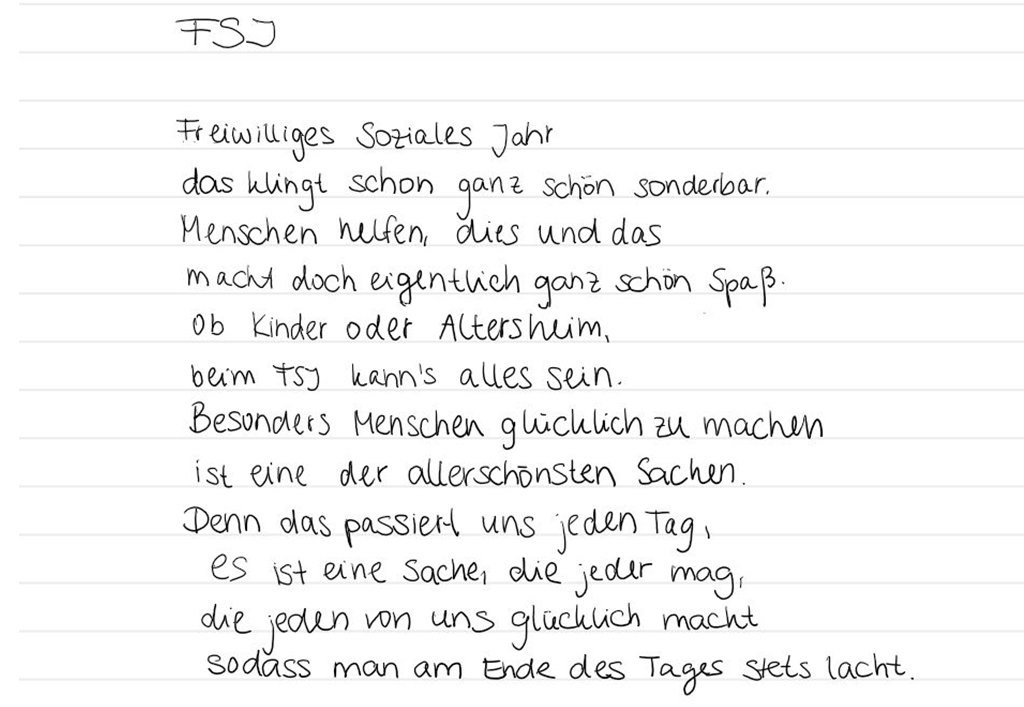 FSJ
Freiwilliges Soziales Jahr
das klingt schon ganz schön sonderbar.
Menschen helfen, dies und das
macht doch eigentlich ganz schön Spaß.
Ob Kinder oder Altersheim,
beim FSJ kann's alles sein.
Besonders Menschen glücklich zu machen
ist eine der allerschönsten Sachen.
Denn das passiert uns jeden Tag,
es ist eine Sache, die jeder mag,
die jeden von uns glücklich macht
sodass man am Ende des Tages stets lacht.